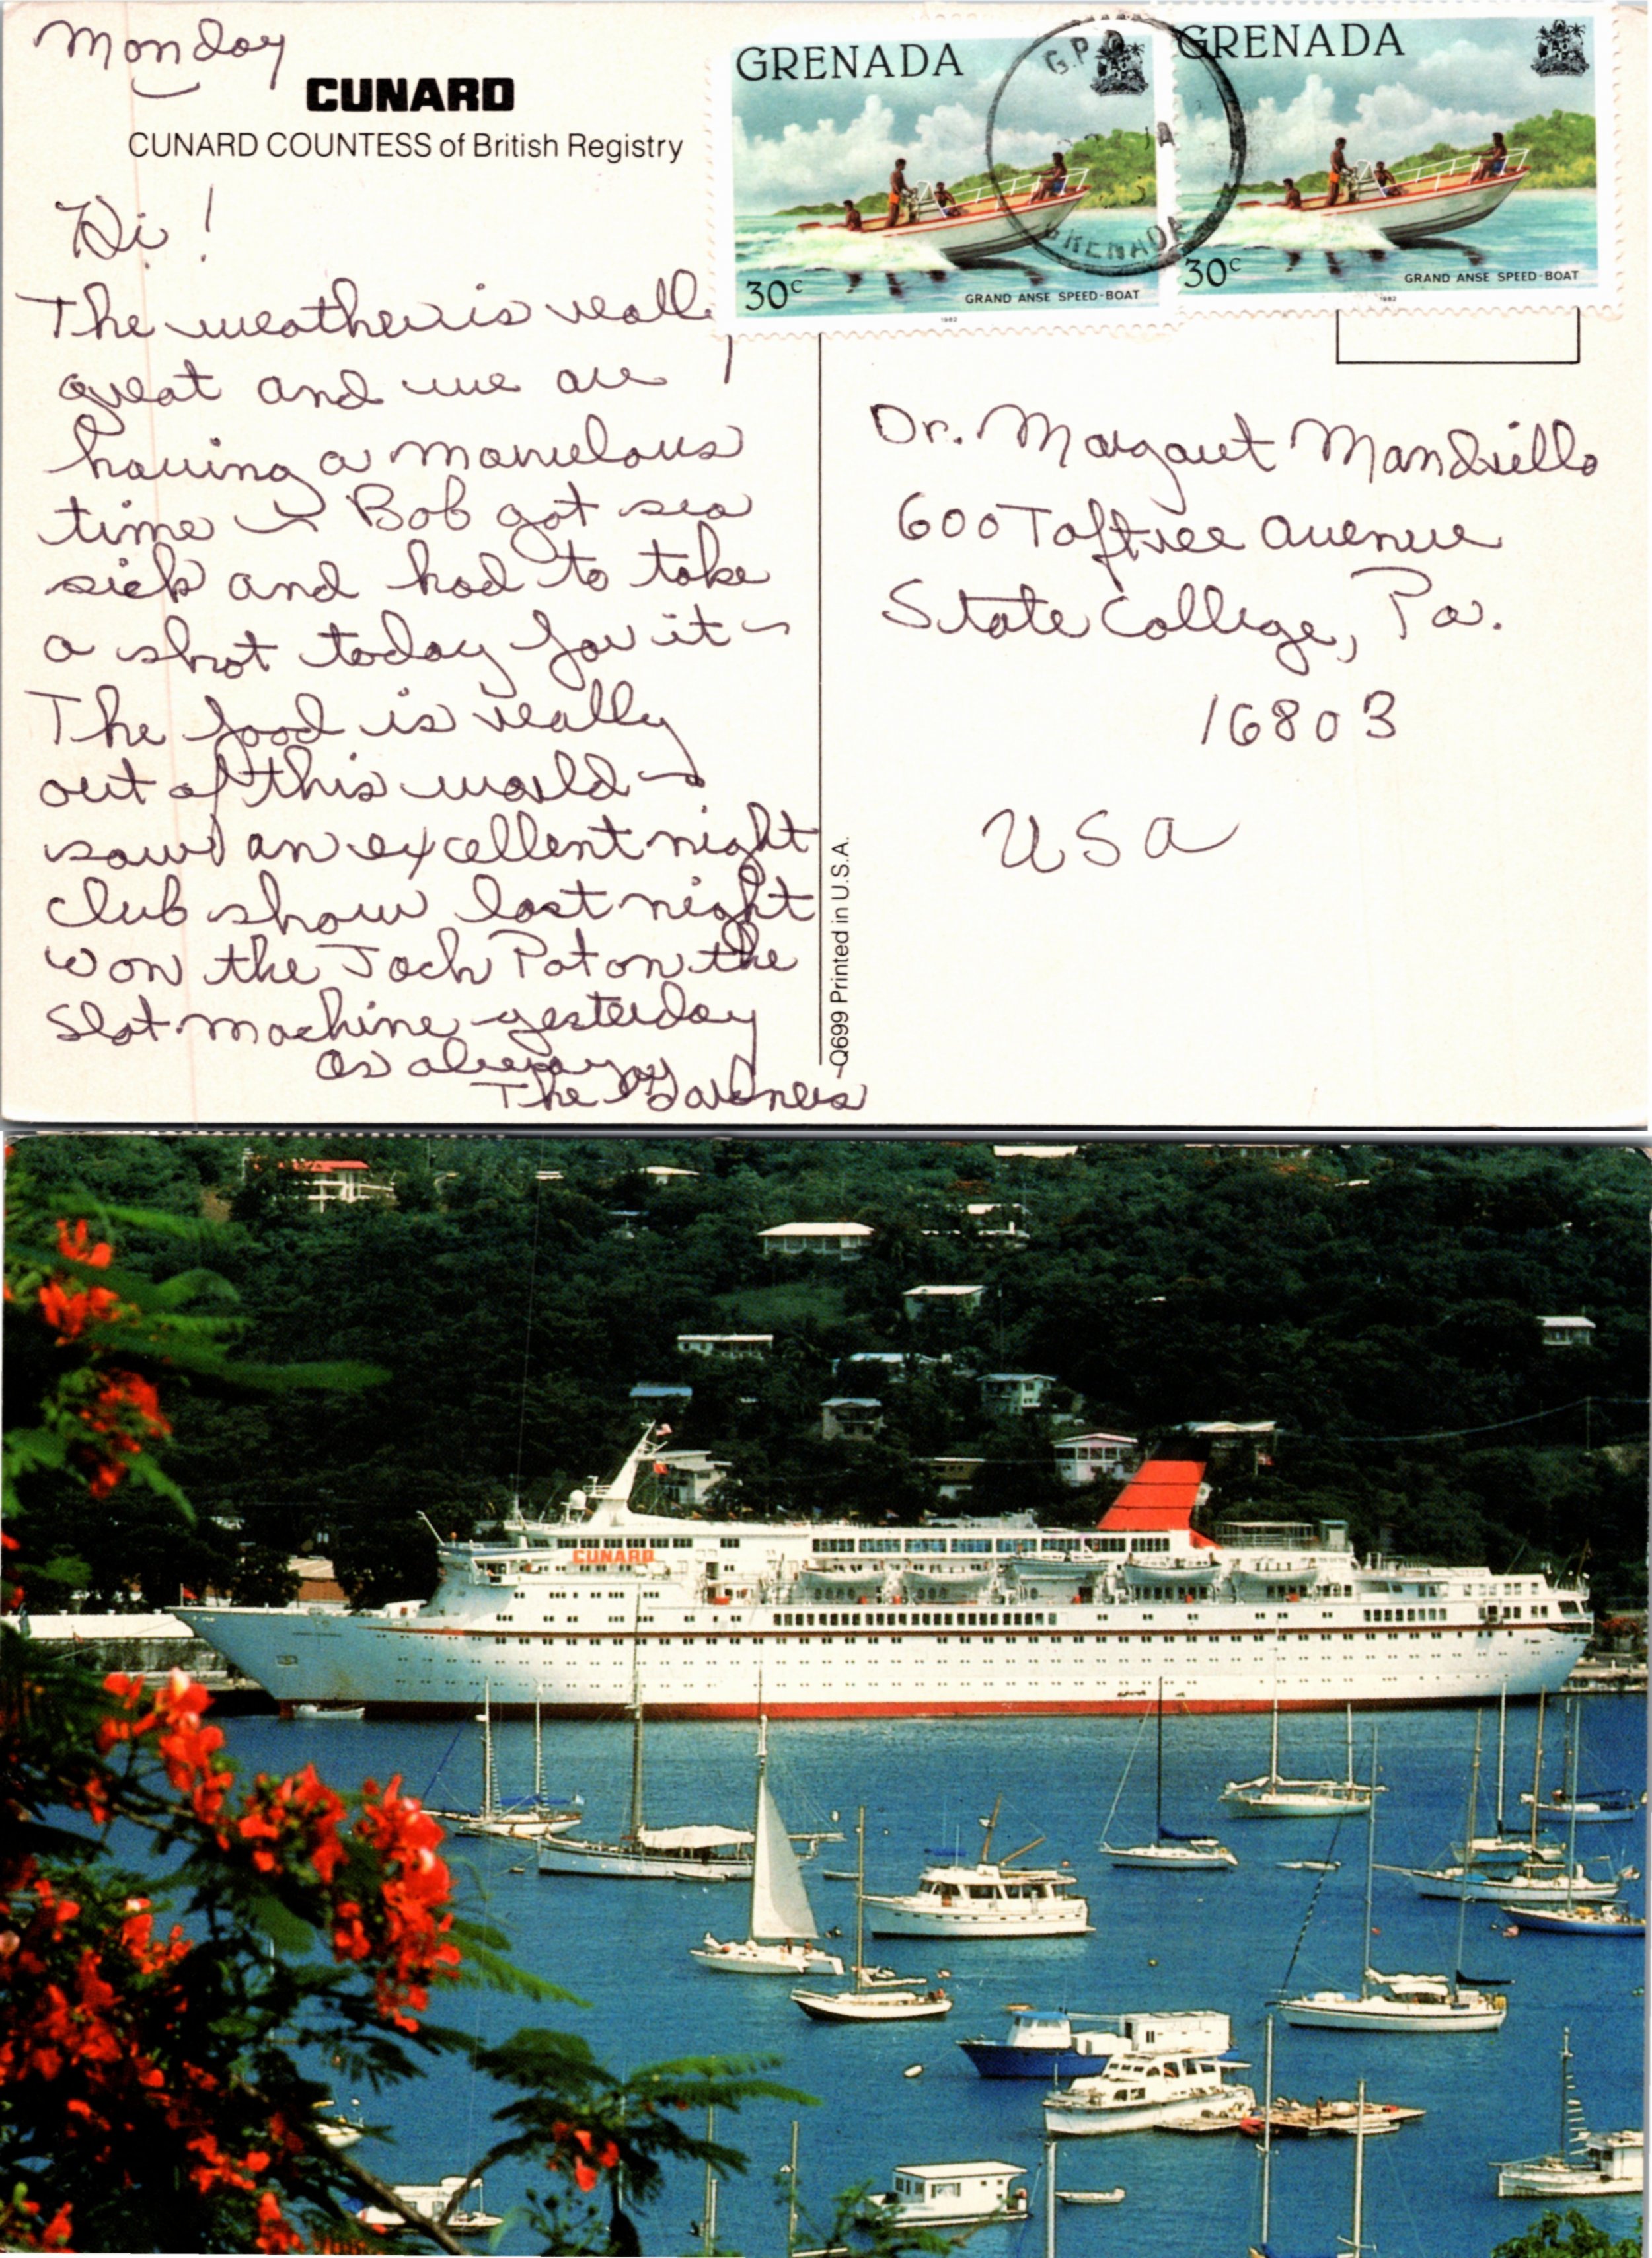 Monday
CUNARD
CUNARD COUNTESS of British Registry
Hi!
The weather is really
great and we are
having a marvelous
time ~ Bob got sea
sick and had to take
a shot today for it ~
The food is really
out of this world ~
saw an excellent night
club show last night
won the Jack Pot on the
slot machine yesterday
as always
The
GRENADA
30c
GRAND ANSE SPEED-BOAT
1982
GRENADA
30c
GRAND ANSE SPEED-BOAT
1982
G.P.O
GRENADA
Dr. Margaret Mandrillo
600 Toftree Avenue
State College, Pa.
16803
USA
Q699 Printed in U.S.A.
CUNARD